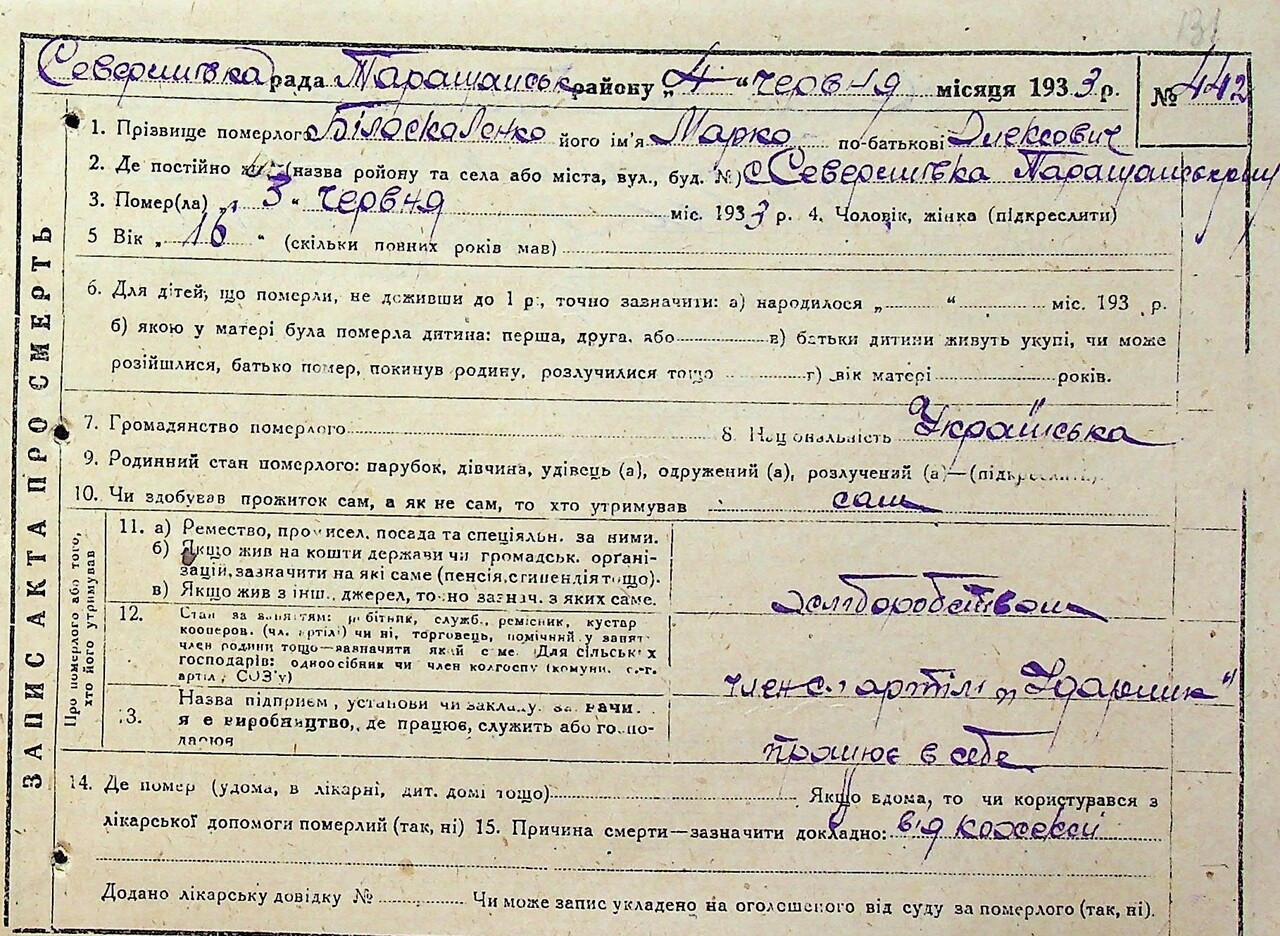 131
Северинівка рада Таращанськ району „4“ червня місяця 1933 р. № 442
1. Прізвище померлого Білоскаленко його ім'я Марко по-батькові Олексович
2. Де постійно жив (назва району та села або міста, вул., буд. №) с Северинівка Таращанського
3. Помер(ла) „3“ червня міс. 1933 р. 4. Чоловік, жінка (підкреслити)
5 Вік „16“ (скільки повних років мав)
6. Для дітей, що померли, не доживши до 1 р., точно зазначити: а) народилося „ “ міс. 193 р.
б) якою у матері була померла дитина: перша, друга, або в) батьки дитини живуть укупі, чи може
розійшлися, батько помер, покинув родину, розлучилися тощо г) вік матері років.
7. Громадянство померлого 8. Національність Українська
9. Родинний стан померлого: парубок, дівчина, удівець (а), одружений (а), розлучений (а)—(підкреслити).
10. Чи здобував прожиток сам, а як не сам, то хто утримував сам
ЗАПИС АКТА ПРО СМЕРТЬ
Про померлого або того, хто його утримував
11. а) Ремество, промисел, посада та спеціяльн. за ними.
б) Якщо жив на кошти держави чи громадськ. органі-
зацій, зазначити на які саме (пенсія, стипендія тощо).
в) Якщо жив з інш. джерел, точно зазнач. з яких саме.
хліборобством
12. Стан за заняттям: робітник, служб., ремісник, кустар
кооперов. (чл. артілі) чи ні, торговець, помічний у занят.
член родини тощо—зазначити який саме. Для сільських
господарів: одноосібник чи член колгоспу (комуни, с.-г.
артілі, СОЗ'у)
член с. г артілі „Ударник“
13. Назва підприєм., установи чи закладу, зазначи.
я е виробництво, де працює, служить або госпо-
дарює
працює в себе
14. Де помер (удома, в лікарні, дит. домі тощо) Якщо вдома, то чи користувався з
лікарської допомоги померлий (так, ні) 15. Причина смерти—зазначити докладно: від
Додано лікарську довідку № Чи може запис укладено на оголошеного від суду за померлого (так, ні).